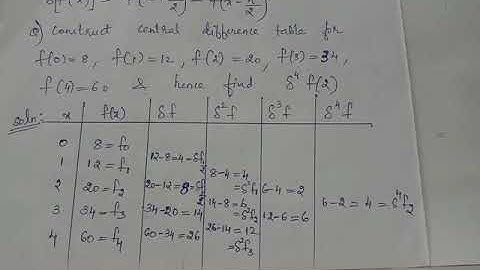 Q) Construct central difference table for
f(0)=8, f(1)=12, f(2)=20, f(3)=34,
f(4)=60 & hence find δ⁴f(2)
soln: x f(x) δf δ²f δ³f δ⁴f
0 8=f₀
12-8=4=δf
1 12=f₁
8-4=4
=δ²f₁
2 20=f₂ 20-12=8=δf 6-4=2
14-8=6
=δ²f₂
6-2=4=δ⁴f₂
3 34=f₃ 34-20=14 12-6=6
26-14=12
=δ²f₃
4 60=f₄ 60-34=26